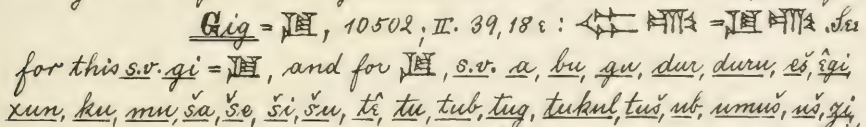 Gig = 𒆪, 10502; II. 39,18 ε : = 𒆪 . See
for this s.v. gi = 𒆪, and for 𒆪, s.v. a, bu, gu, dur, duru, eš, êgi,
xun, ku, mu, ša, še, ši, šu, tê, tu, tub, tug, tukul, tuš, ub, umuš, uš, zi,